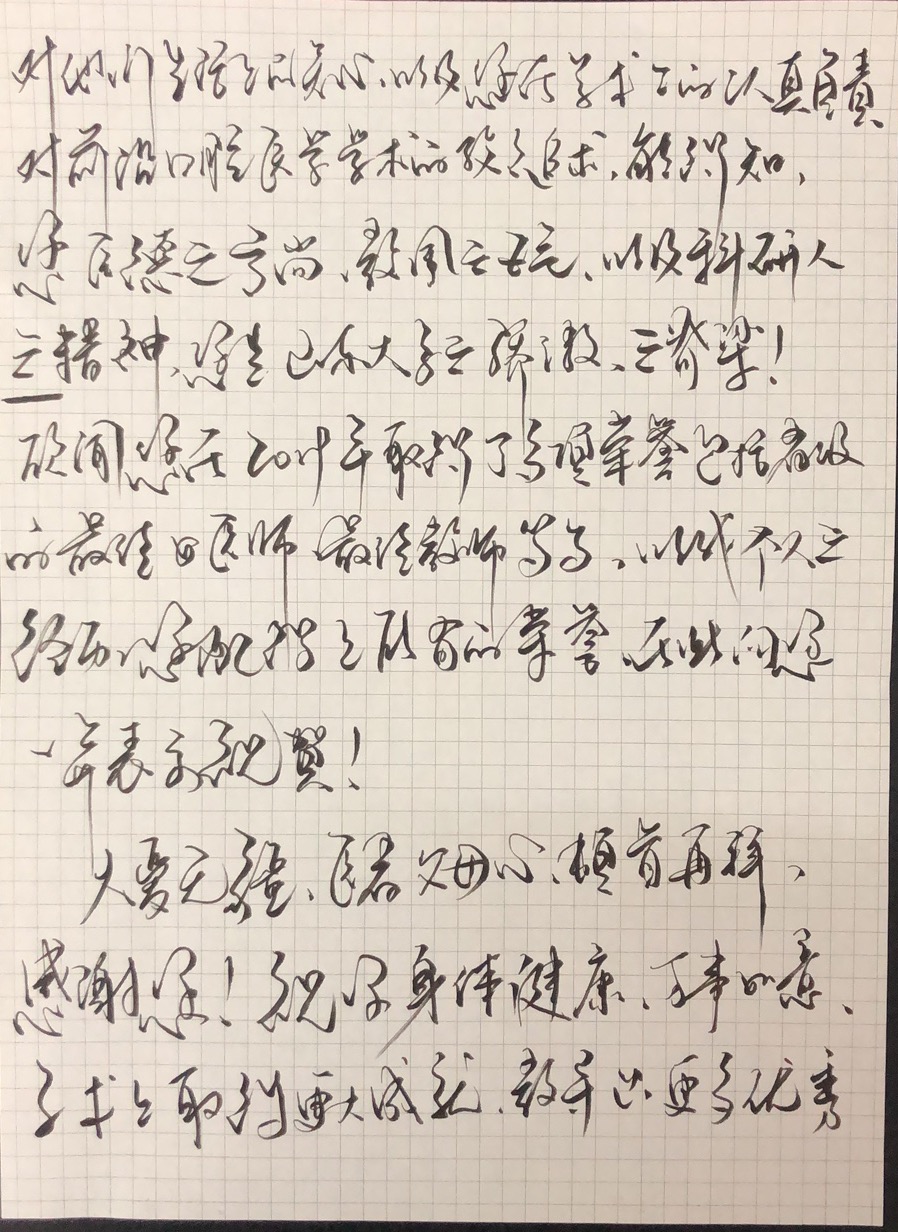 对他们生活上的关心、以及您在学术上的认真负责、
对前沿口腔医学学术的孜孜追求,能得知,
您医德之高尚、教风之正、以及科研人
之精神,您是大学之骄傲、之脊梁!
欣闻您在年取得了多项荣誉包括省级
的最佳医师最佳教师等等、以我个人之
经历、您配得上所有的荣誉、在此向您
一并表示祝贺!
大爱无疆、医者父母心、顿首再拜、
感谢您!祝您身体健康、万事如意、
学术上取得更大成就、教导出更多优秀